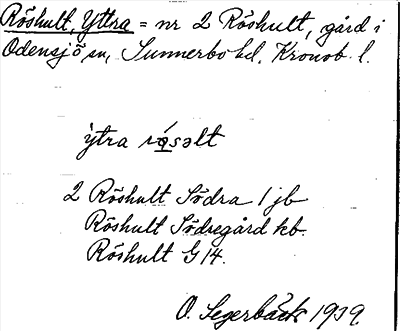 Röshult, Yttra = nr 2 Röshult, gård i
Odensjö sn, Sunnerbo hd, Kronob. l.
ytra rǿsəlt
2 Röshult Södra 1 jb
Röshult Södregård kb.
Röshult G 14.
O. Segerbäck 1939